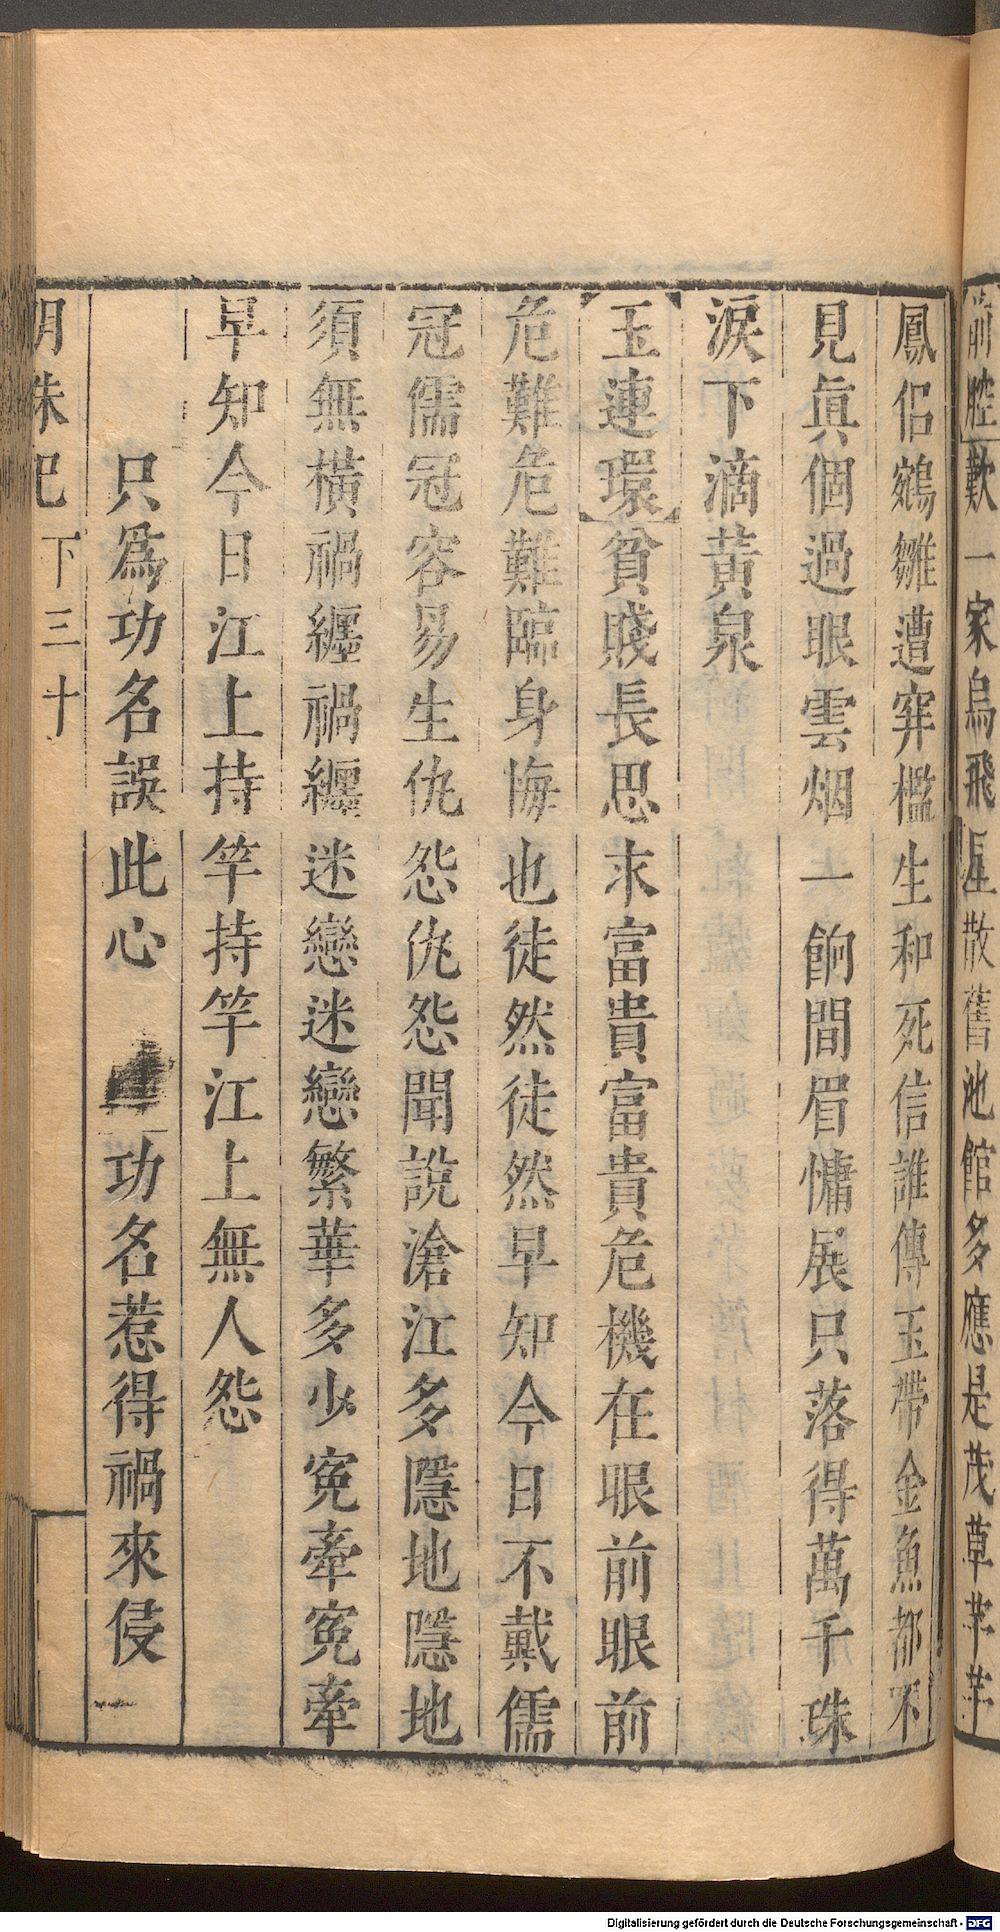 前腔歎一家烏飛星散舊池館多應是茂草芊芊
鳳侶鵷雛遭穽檻生和死信誰傳玉帶金魚都不
見眞個過眼雲烟一餉間眉慵展只落得萬千珠
淚下滴黃泉
玉連環貧賤長思求富貴富貴危機在眼前眼前
危難危難臨身悔也徒然徒然早知今日不戴儒
冠儒冠容易生仇怨仇怨聞說滄江多隱地隱地
須無橫禍纏禍纏迷戀迷戀繁華多少寃牽寃牽
早知今日江上持竿持竿江上無人怨
只爲功名誤此心 功名惹得禍來侵
明珠記 下 三十
Digitalisierung gefördert durch die Deutsche Forschungsgemeinschaft - DFG